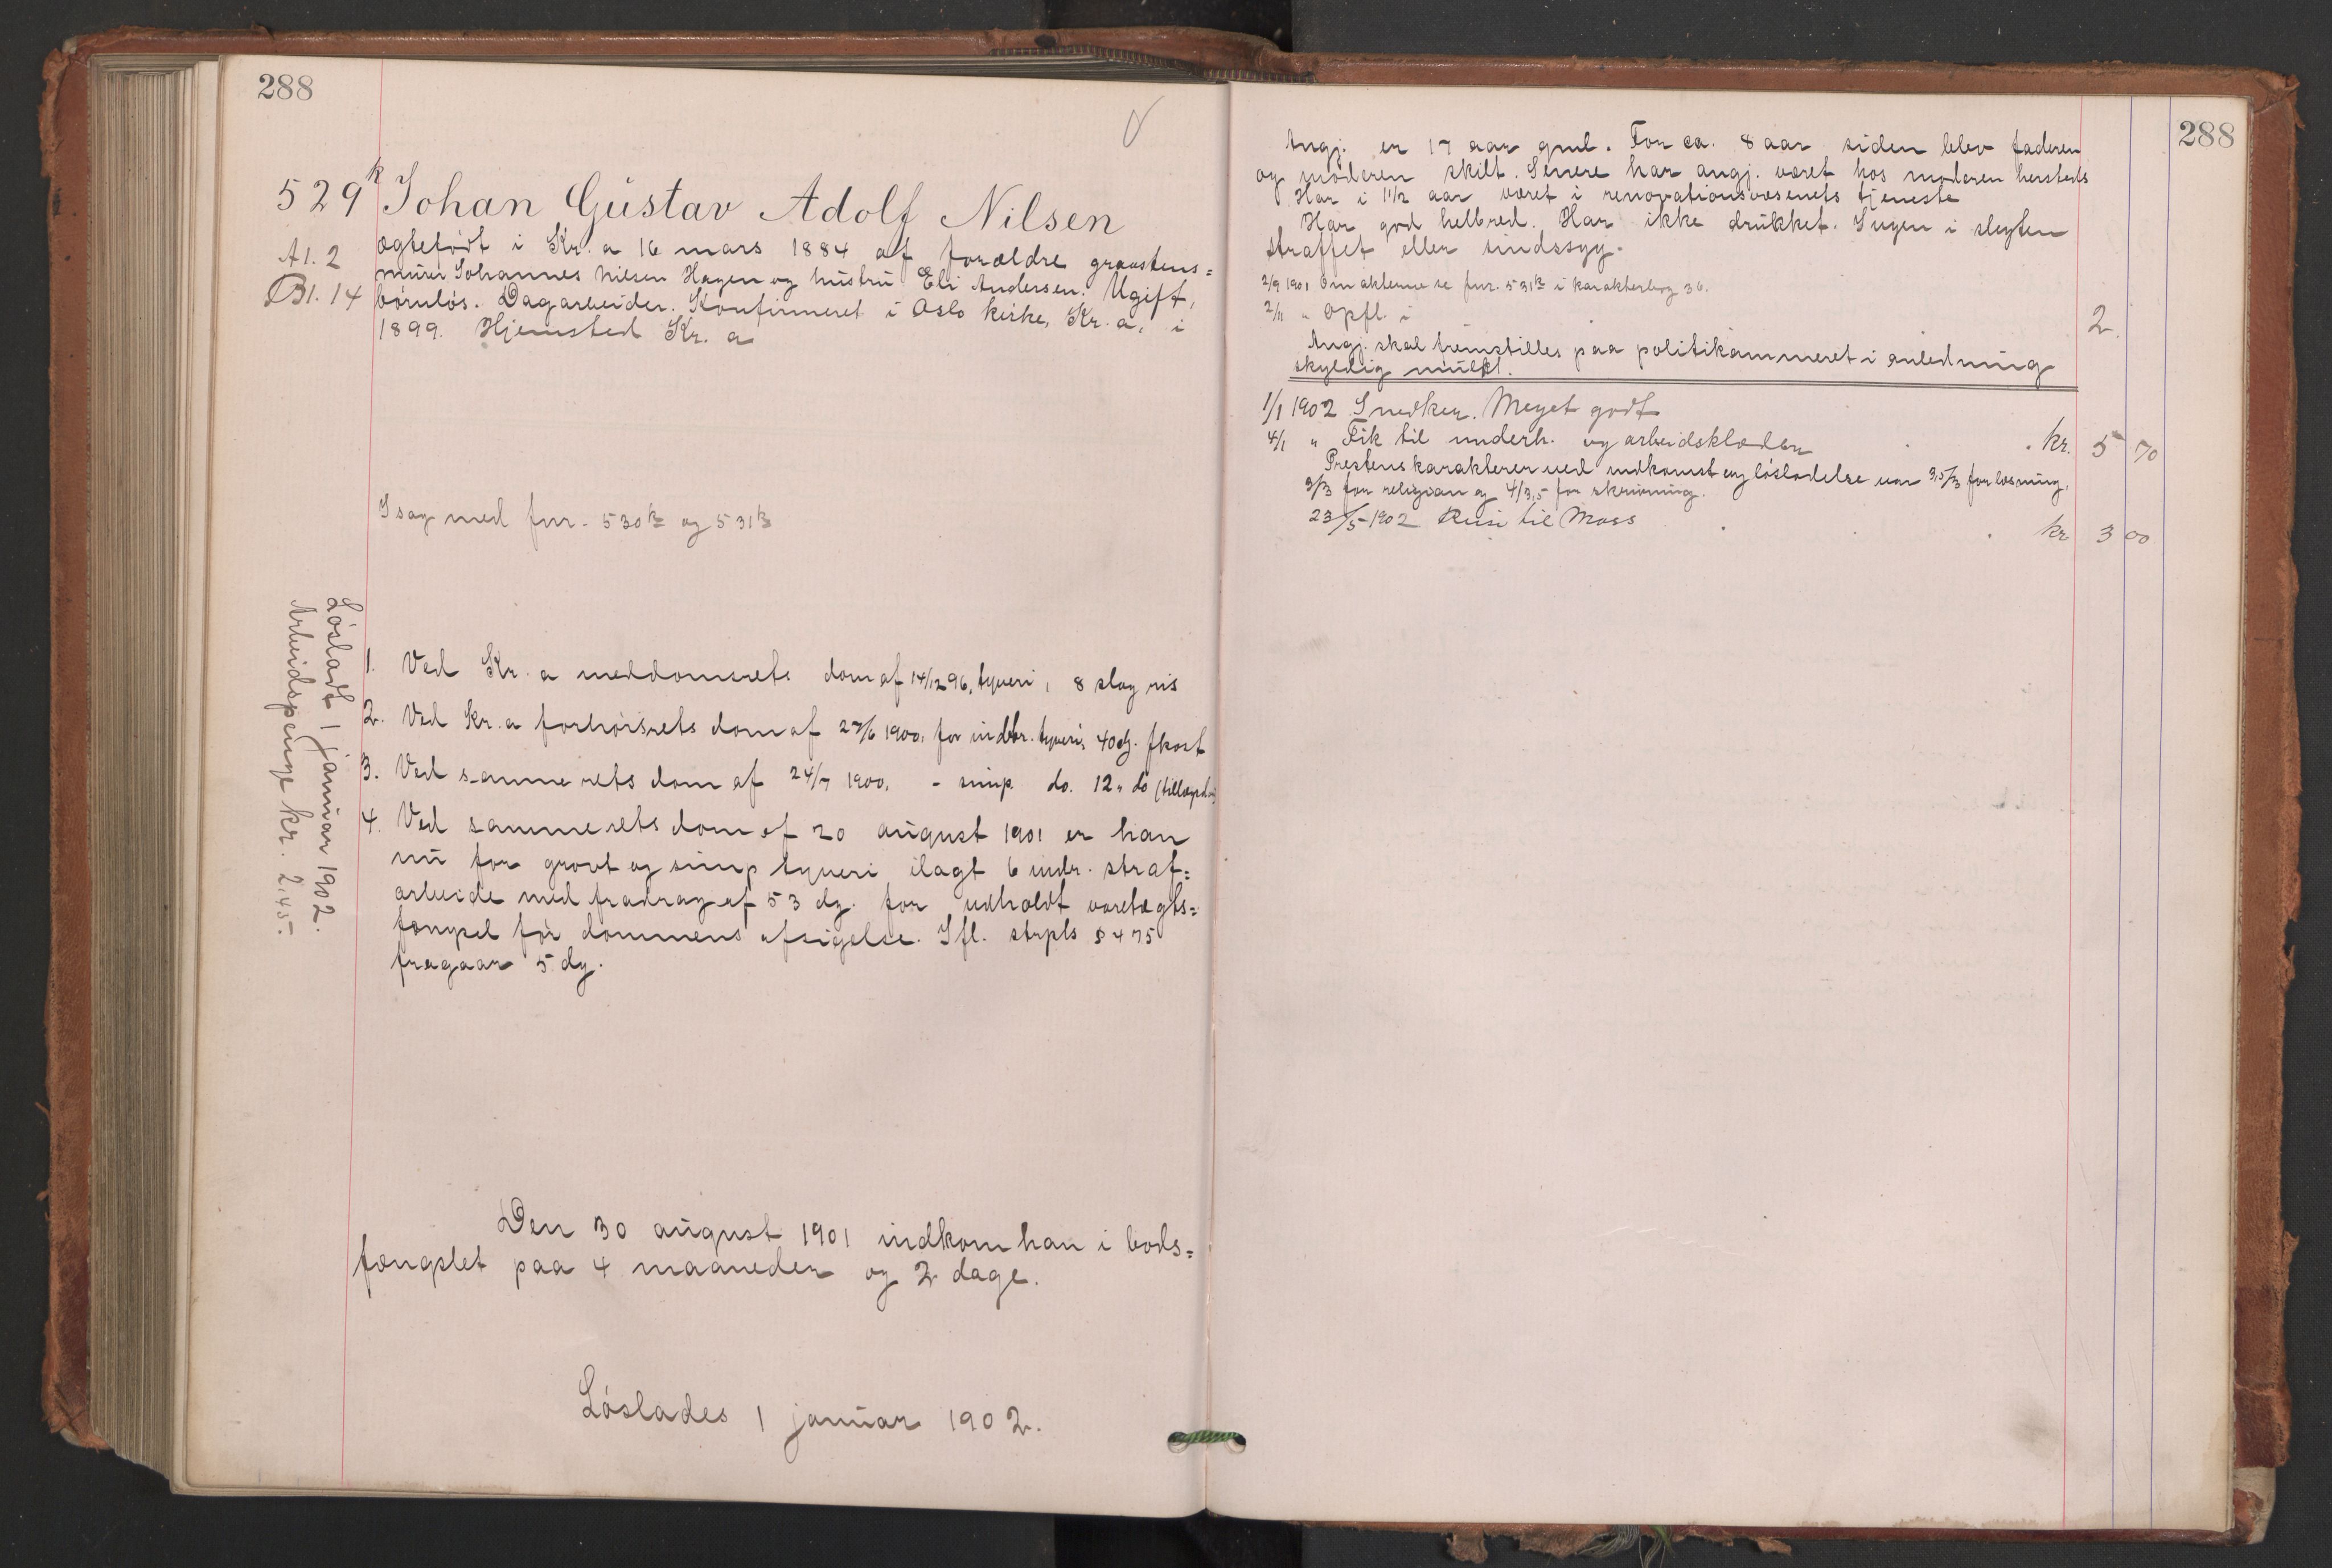 288
529k Johan Gustav Adolf Nilsen
A1. 2
B1. 14
ægtefødt i Kr.a 16 mars 1884 af forældre graastens=
murer Johannes Nilsen Hagen og hustru Eli Andersen. Ugift,
børnløs. Dagarbeider. Konfirmeret i Oslo kirke, Kr.a, i
1899. Hjemsted Kr.a
I sag med fnr. 530k og 531k
Løsladt 1 januar 1902.
Arbeidspenge kr. 2.45.
1. Ved Kr.a meddomsrets dom af 14/12 96, tyveri, 8 slag ris
2. Ved Kr.a forhørsrets dom af 27/6 1900, for indbr. tyveri, 40 dg. fkost
3. Ved samme rets dom af 24/7 1900, - simp. do. 12 " do
4. Ved samme rets dom af 20 august 1901 er han
nu for grovt og simp tyveri ilagt 6 mdr. straf=
arbeide med fradrag af 53 dg. for udholdt varetægts=
fængsel før dommens afsigelse. Ifl. strpls § 475
fragaar 5 dg.
Den 30 august 1901 indkom han i bods=
fængslet paa 4 maaneder og 2 dage.
Løslades 1 januar 1902.
288
Angj. er 17 aar gml. For ca. 8 aar siden blev faderen
og moderen skilt. Senere har angj. været hos moderen hersteds
Har i 1 1/2 aar været i renovationsvæsenets tjeneste
Har god helbred. Har ikke drukket. Ingen i slegten
straffet eller sindssyg.
2/9 1901 Om akterne se fnr. 531k i karakterbog 36.
2/11 " Opfl. i 2
Angj. skal fremstilles paa politikammeret i anledning
skyldig mulkt.
1/1 1902 Snedker. Meget godt
4/1 " Fik til underh. og arbeidsklæder kr. 5 70
Prestens karakterer ved indkomst og løsladelse var 3,5/3 for læsning,
3/3 for religion og 4/3,5 for skrivning.
23/5-1902 Reise til Moss kr 3 00